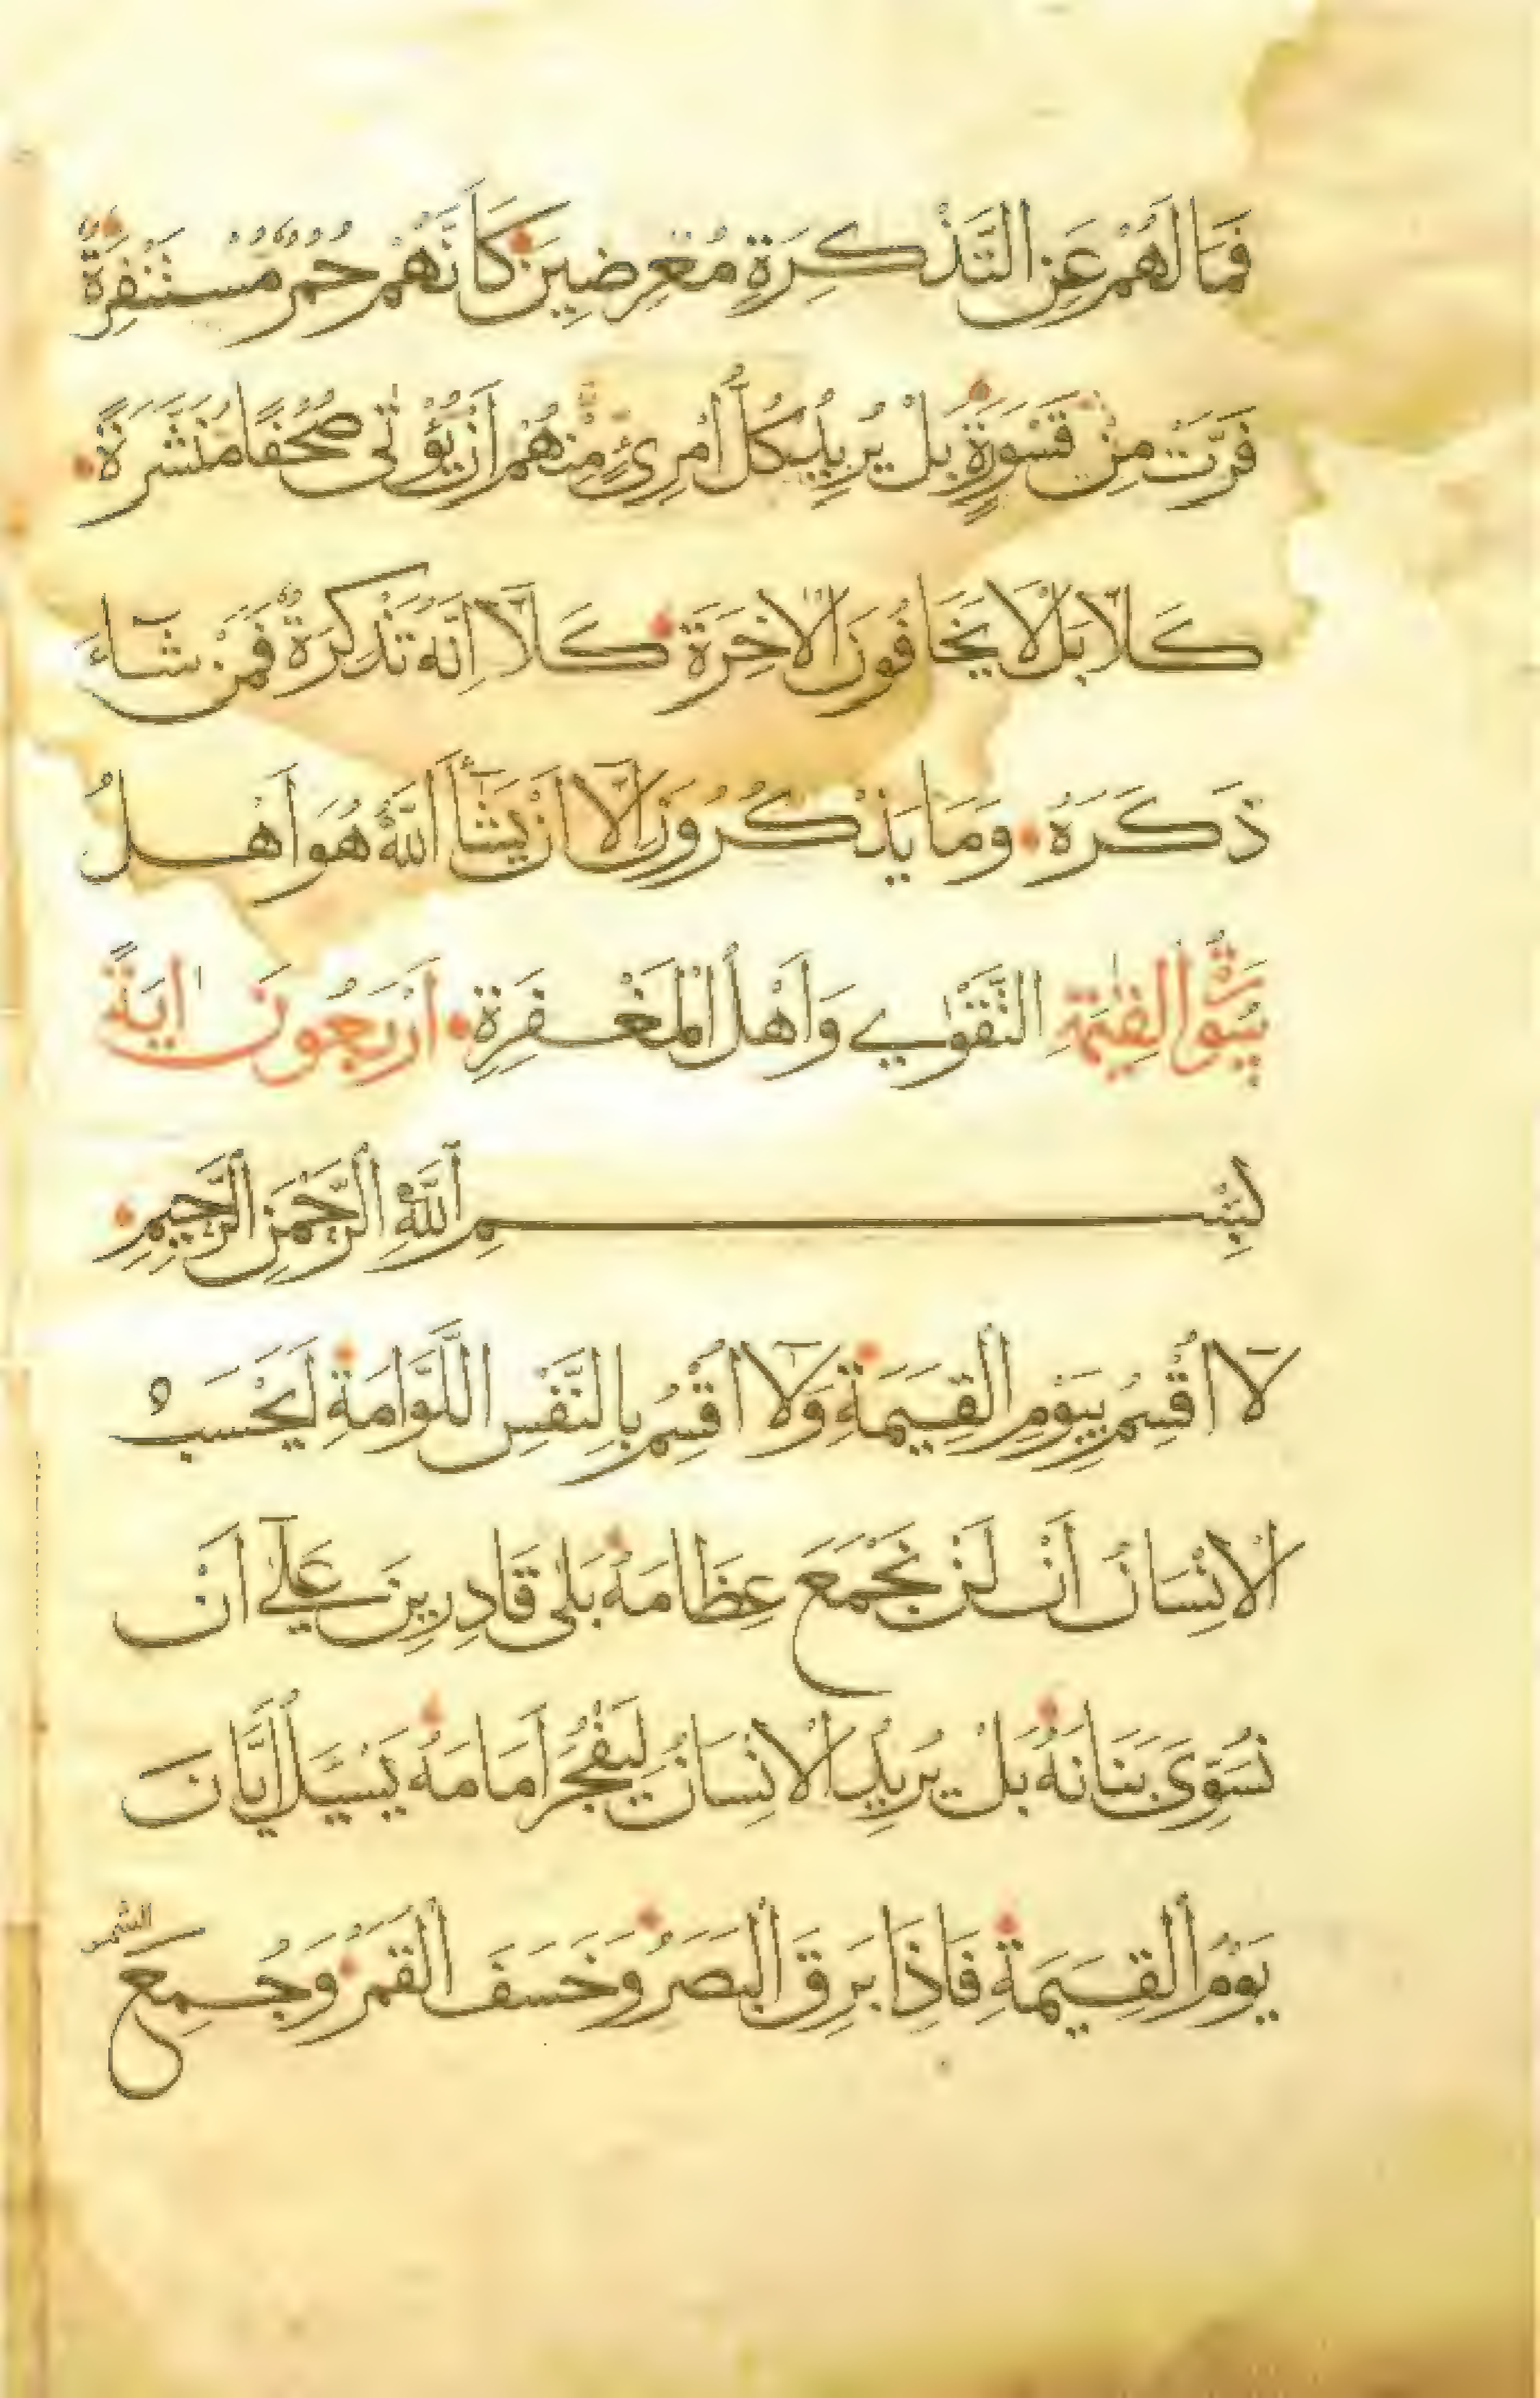 فَمَا لَهُمْ عَنِ التَّذْكِرَةِ مُعْرِضِينَ كَأَنَّهُمْ حُمُرٌ مُسْتَنْفِرَةٌ
فَرَّتْ مِنْ قَسْوَرَةٍ بَلْ يُرِيدُ كُلُّ امْرِئٍ مِنْهُمْ اَنْ يُؤْتٰى صُحُفًا مُنَشَّرَةً
كَلَّا بَلْ لَا يَخَافُونَ الْاٰخِرَةَ كَلَّا اِنَّهُ تَذْكِرَةٌ فَمَنْ شَآءَ
ذَكَرَهُ وَمَا يَذْكُرُونَ اِلَّا اَنْ يَشَآءَ اللّٰهُ هُوَ اَهْلُ
سُورَةُ الْقِيٰمَةِ التَّقْوٰي وَاَهْلُ الْمَغْفِرَةِ اَرْبَعُونَ اٰيَةً
بِسْمِ اللّٰهِ الرَّحْمٰنِ الرَّحِيمِ
لَآ اُقْسِمُ بِيَوْمِ الْقِيٰمَةِ وَلَآ اُقْسِمُ بِالنَّفْسِ اللَّوَّامَةِ اَيَحْسَبُ
الْاِنْسَانُ اَنْ لَنْ نَجْمَعَ عِظَامَهُ بَلٰى قَادِرِينَ عَلٰٓي اَنْ
نُسَوِّىَ بَنَانَهُ بَلْ يُرِيدُ الْاِنْسَانُ لِيَفْجُرَ اَمَامَهُ يَسْـَٔلُ اَيَّانَ
يَوْمُ الْقِيٰمَةِ فَاِذَا بَرِقَ الْبَصَرُ وَخَسَفَ الْقَمَرُ وَجُمِعَ
الشمس